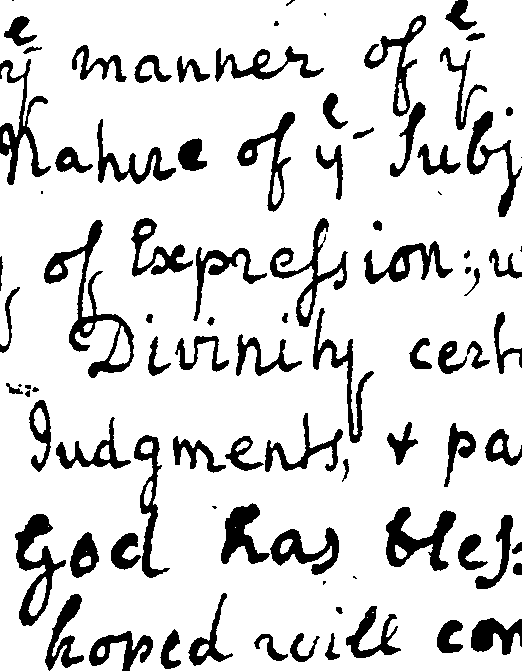 yͤ manner of yͤ
Nature of yͤ Subj
of Expreſsion:, w
Divinity cert
Judgments, & pa
God has bleſs
hoped will con